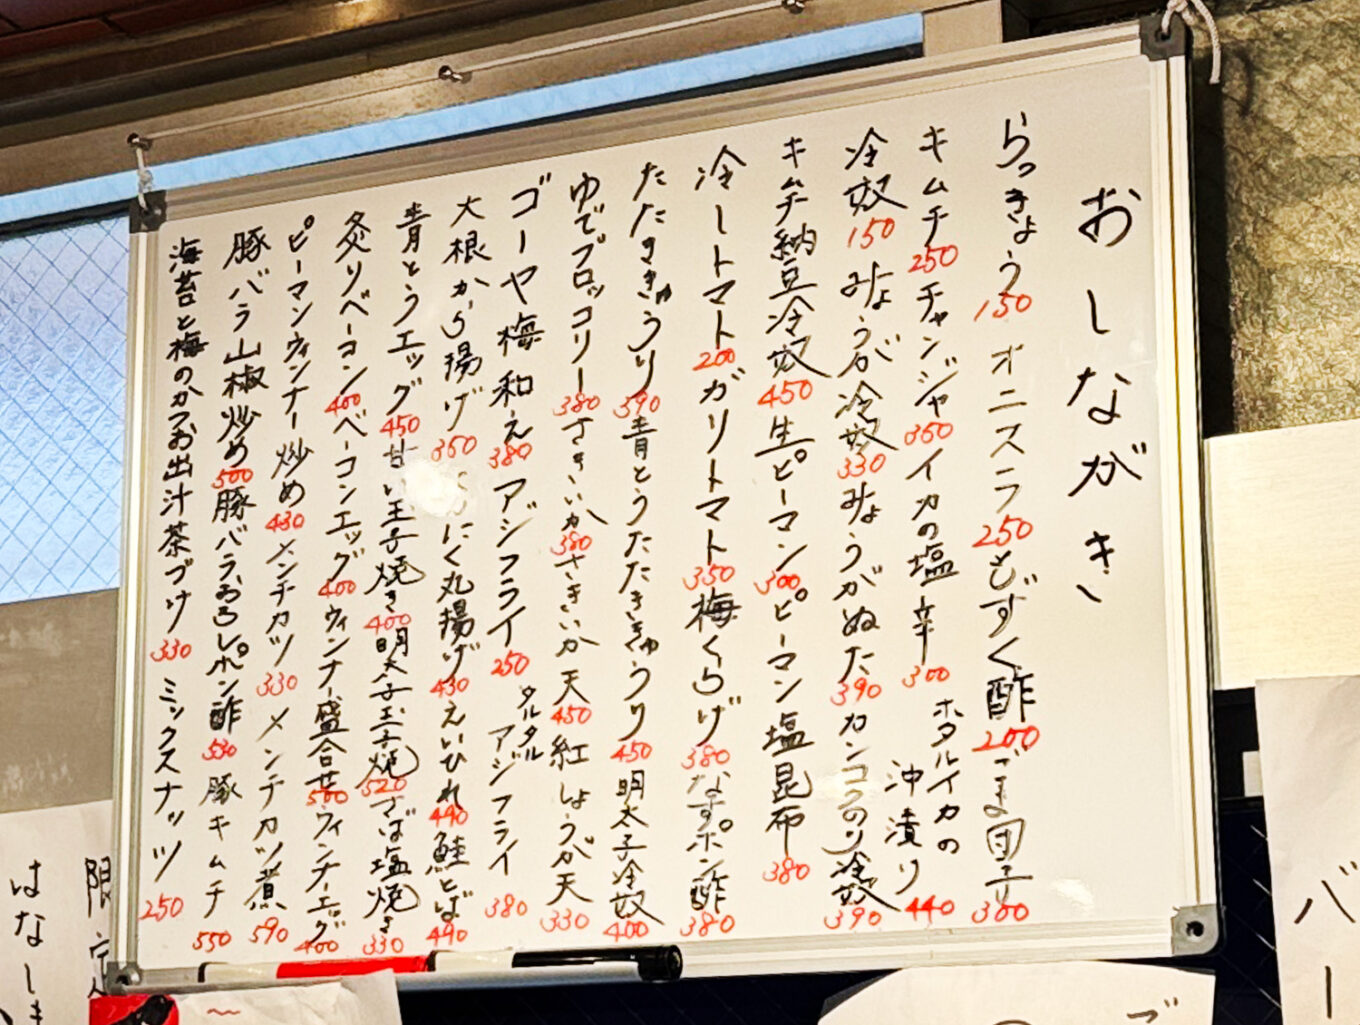 おしながき
らっきょう 150 オニスラ 250 もずく酢 200 ごま団子 300
キムチ 250 チャンジャ 350 イカの塩辛 300 ホタルイカの沖漬り 440
冷奴 150 みょうが冷奴 330 みょうがぬた 390 カンコクのり冷奴 390
キムチ納豆冷奴 450 生ピーマン 300 ピーマン塩昆布 380
冷しトマト 200 ガリトマト 350 梅くらげ 380 なすポン酢 380
たたききゅうり 390 青とうたたききゅうり 450 明太子冷奴 400
ゆでブロッコリー 380 さきいか 380 さきいか天 450 紅しょうが天 330
ゴーヤ梅和え 380 アジフライ 250 タルタルアジフライ 380
大根から揚げ 350 にんにく丸揚げ 430 えいひれ 490 鮭とば 490
青とうエッグ 450 甘い玉子焼き 400 明太子玉子焼 520 さば塩焼き 330
炙りベーコン 400 ベーコンエッグ 400 ウィンナー盛合せ 500 ウィンナーエッグ 400
ピーマンウィンナー炒め 430 メンチカツ 330 メンチカツ煮 590
豚バラ山椒炒め 500 豚バラおろしポン酢 530 豚キムチ 550
海苔と梅のかつお出汁茶づけ 330 ミックスナッツ 250
バー
限定
はなしま